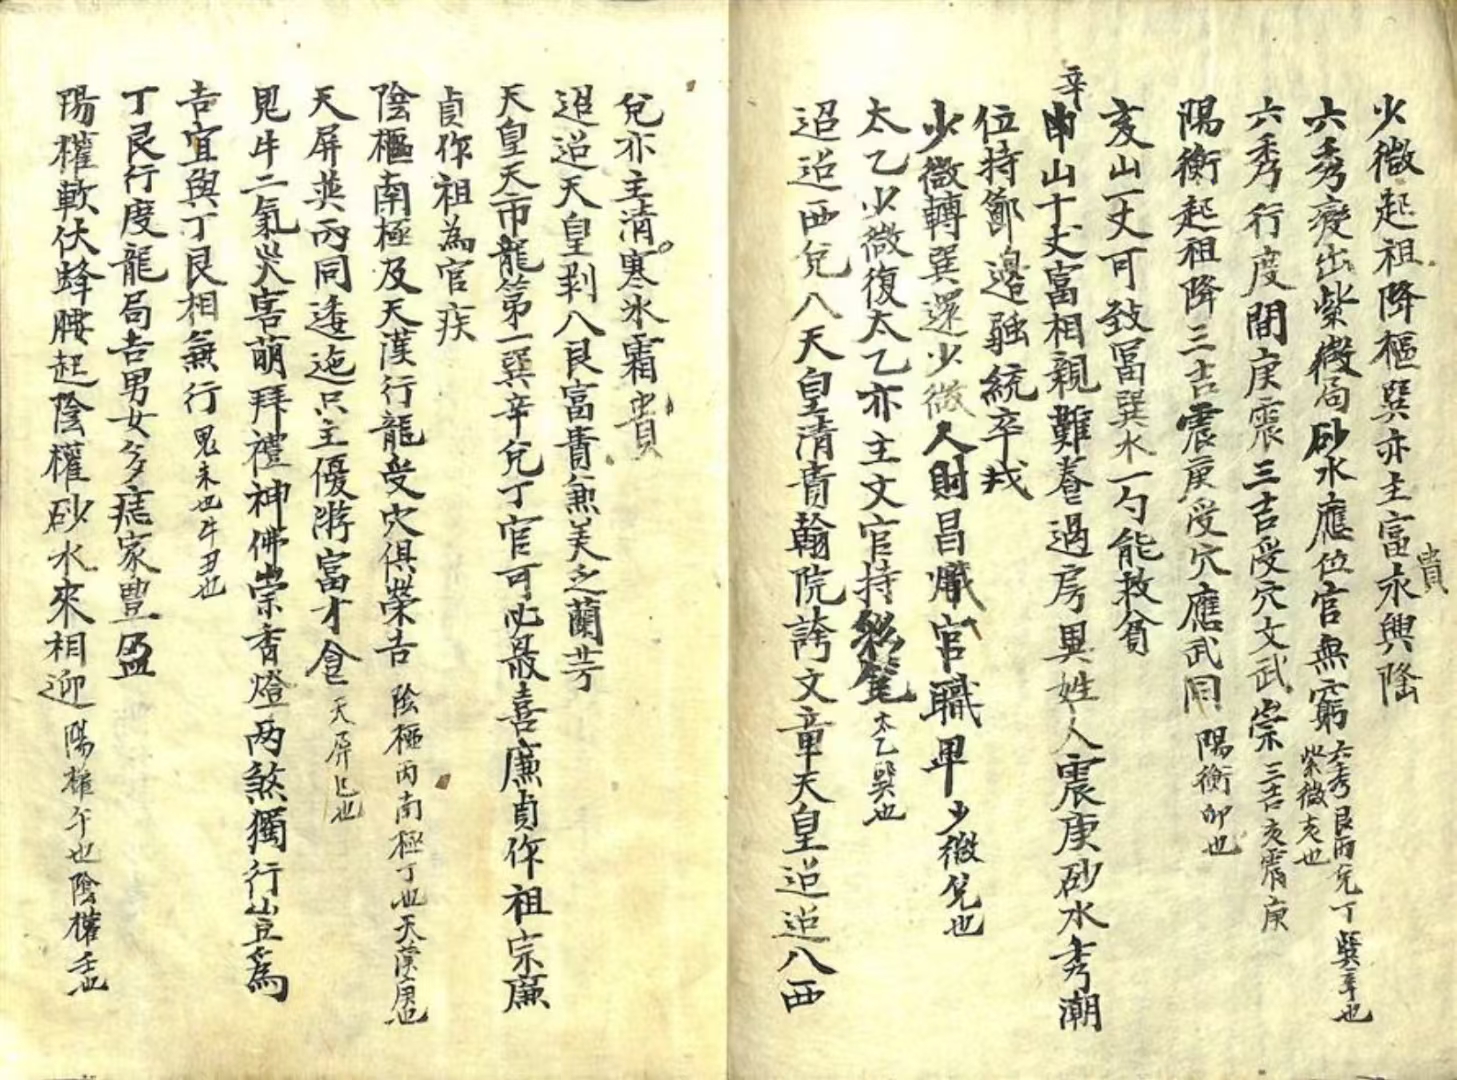 少微起祖降樞巽亦主富永興隆
貴
六秀變出紫微局砂水應位官無窮 六秀艮丙兌丁巽辛也
紫微亥也
六秀行度間庚震三吉受穴文武崇 三吉亥震庚
陽衡起祖降三吉震庚受穴應武同 陽衡卯也
亥山一丈可致富巽水一勺能救貧
辛
申山十丈富相親難養過房異姓人震庚砂水秀潮
位持節邊疆統卒戎
少微轉巽還少微人財昌熾官職卑 少微兌也
太乙少微復太乙亦主文官持 太乙巽也
迢迢西兌入天皇清貴翰院誇文章天皇迢迢入西
兌亦主清寒冰霜貴
迢迢天皇剥入艮富貴兼美之蘭芳
天皇天市龍第一巽辛兌丁官可必最喜廉貞作祖宗廉
貞作祖為官疾
陰樞南極及天漢行龍受穴俱榮吉 陰樞丙南極丁也天漢庚也
天屏英丙同逶迤只主優游富才食 天屏巳也
鬼牛二氣災害萌拜禮神佛崇香燈两煞獨行山豈為
吉宜與丁艮相兼行 鬼未也牛丑也
丁艮行度龍局吉男女多痣家豐盈
陽權軟伏蜂腰起陰權砂水來相迎 陽權午也陰權壬也